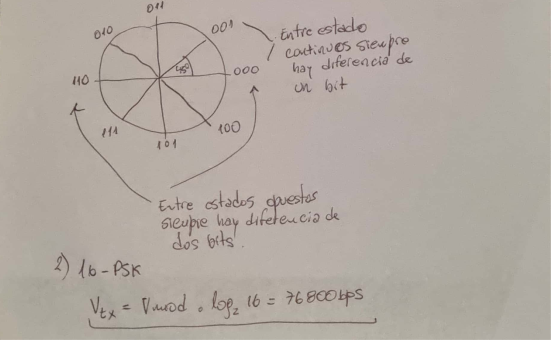 011
010
001
45º
110
000
111
101
100
Entre estado
continuos siempre
hay diferencia de
un bit
Entre estados opuestos
siempre hay diferencia de
dos bits.
2) 16-PSK
Vtx = Vmod . log2 16 = 76800bps